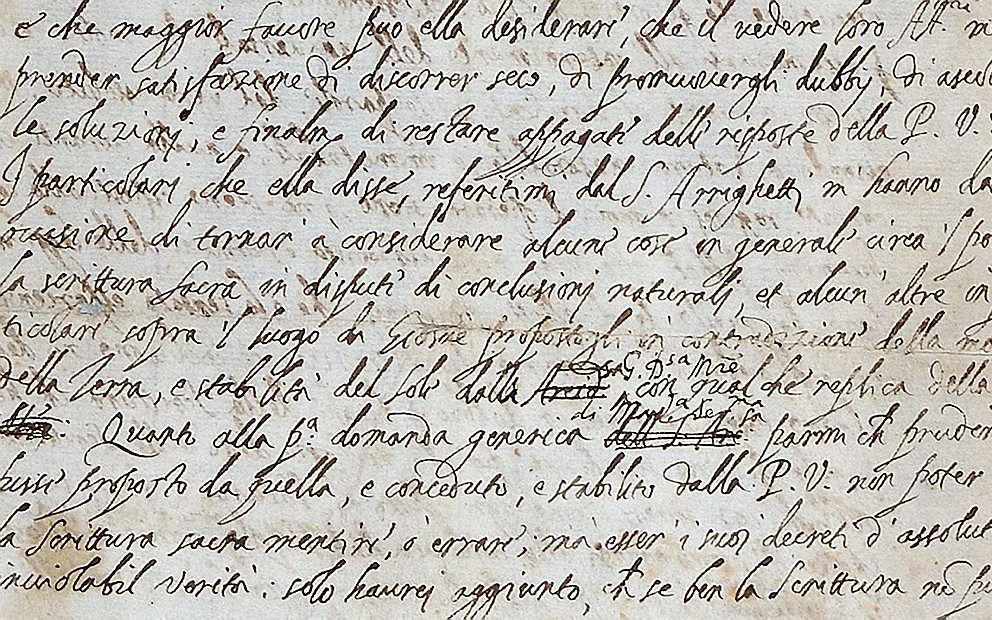 e che maggior favore può ella desiderare, che il vedere loro AA.me m
prender satisfazione di discorrer seco, di promuovergli dubbij, di ascol
le soluzionj, e finalm.e di restare appagati delle risposte della P. V.
I particolari che ella disse, referitimi dal S. Arrighetti m'hanno da
occasione di tornar à considerare alcune cose in generale circa 'l po
la scrittura sacra in dispute di conclusionj naturalj, et alcun'altre in
ticolare sopra 'l luogo di Giosuè propostogli in contradizione della mo
della Terra, e stabilità del sole dalla G. D.sa M.re con qualche replica della
di M.ma Ser.ma
Quanto alla p.a domanda generica parmi ch' pruden
fusse proposto da quella, e conceduto, e stabilito dalla P. V. non poter
la Scrittura sacra mentire, ò errare, ma esser i suoj decreti d' assolut
inviolabil verità: solo havrej aggiunto, ch' se ben la Scrittura nō pu